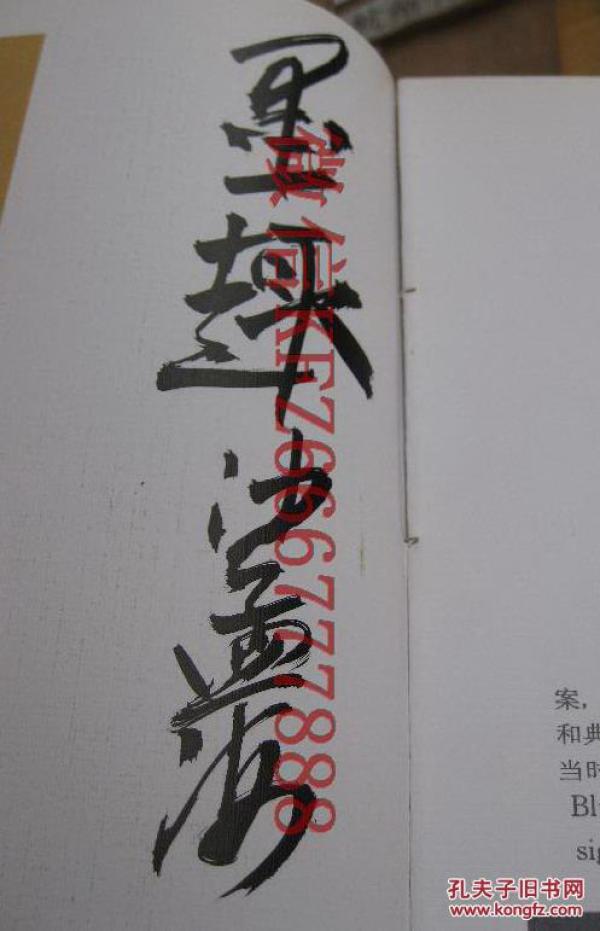 墨趣
沙孟海
微信KFZ666777888
案，
和典
当时
Bl
sig
孔夫子旧书网
www.kongfz.com